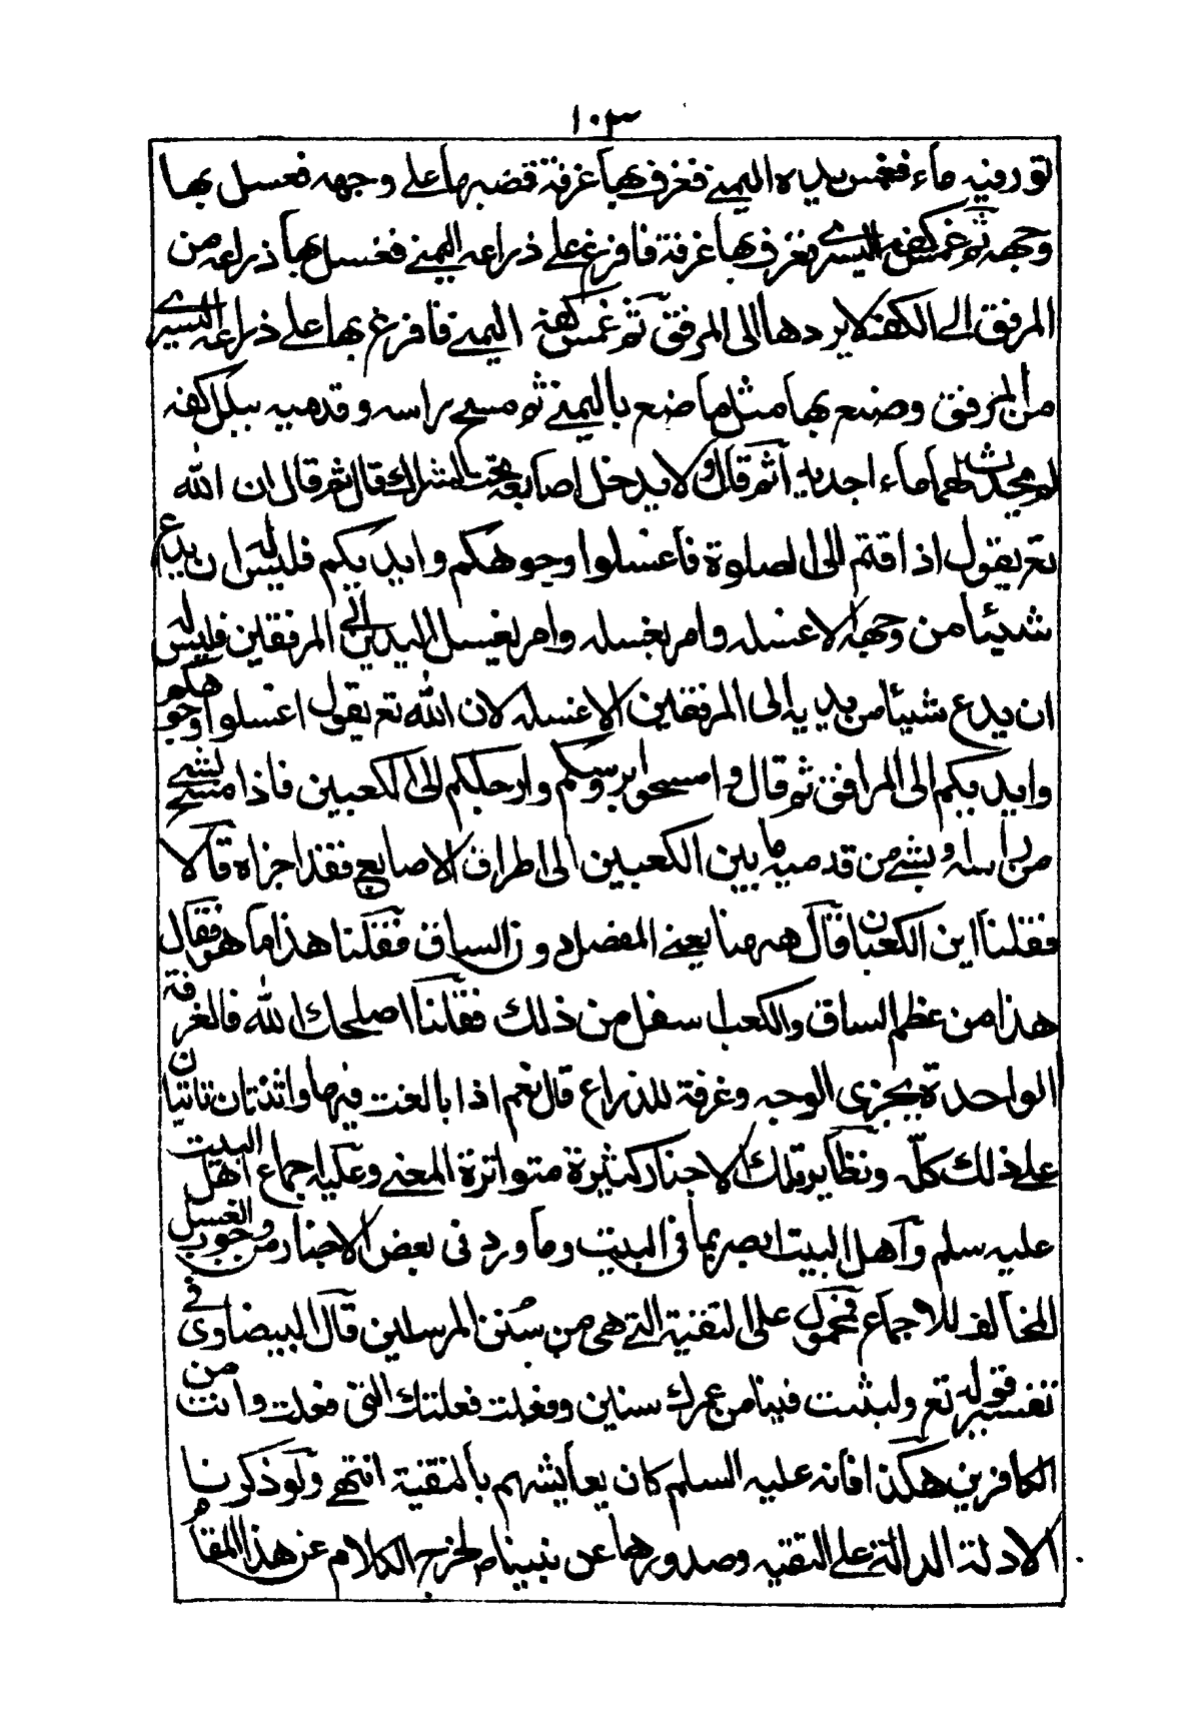 ١٠٣
تور فيه ماء فغمس يده اليمنى فغرف بها غرفة فصبها على وجهه فغسل بها
وجهه ثم غمس كفه اليسرى فغرف بها غرفة فافرغ على ذراعه اليمنى فغسل بها ذراعه من
المرفق الى الكف لا يردها الى المرفق ثم غمس كفه اليمنى فافرغ بها على ذراعه اليسرى
من المرفق وصنع بها مثل ما صنع باليمنى ثم مسح براسه وقدميه ببلل كفه
لم يحدث لهما ماء اجديدا ثم قال ولا يدخل اصابعه تحت الشراك قال ثم قال ان الله
تع يقول اذا قمتم الى الصلوة فاغسلوا وجوهكم وايديكم فليس له ان يدع
شيئا من وجهه الا غسله وامر بغسله وامر بغسل اليدين الى المرفقين فليس له
ان يدع شيئا من يديه الى المرفقين الا غسله لان الله تع يقول اغسلوا وجوهكم
وايديكم الى المرافق ثم قال وامسحوا برؤسكم وارجلكم الى الكعبين فاذا مسح بشئ
من راسه وبشئ من قدميه ما بين الكعبين الى اطراف الاصابع فقد اجزاه قالا
فقلنا اين الكعبان قال ههنا يعنى المفصل دون الساق فقلنا هذا ما هو فقال
هذا من عظم الساق والكعب اسفل من ذلك فقلنا اصلحك الله فالغرفة
الواحدة يجزى الوجه وغرفة للذراع قال نعم اذا بالغت فيها واثنتان تاتيان
على ذلك كله ونظاير تلك الاخبار كثيرة متواترة المعنى وعليه اجماع اهل البيت
عليه سلم واهل البيت ابصر بما فى البيت وما ورد فى بعض الاخبار من وجوب الغسل
المخالف للاجماع فمحمول على التقية التى هى من سنن المرسلين قال البيضاوى فى
تفسير قوله تع ولبثت فينا من عمرك سنين وفعلت فعلتك التى فعلت وانت من
الكافرين هكذا فانه عليه السلم كان يعايشهم بالتقية انتهى ولو ذكرنا
الادلة الدالة على التقيه وصدورها عن نبينا ص لخرج الكلام عن هذا المقام